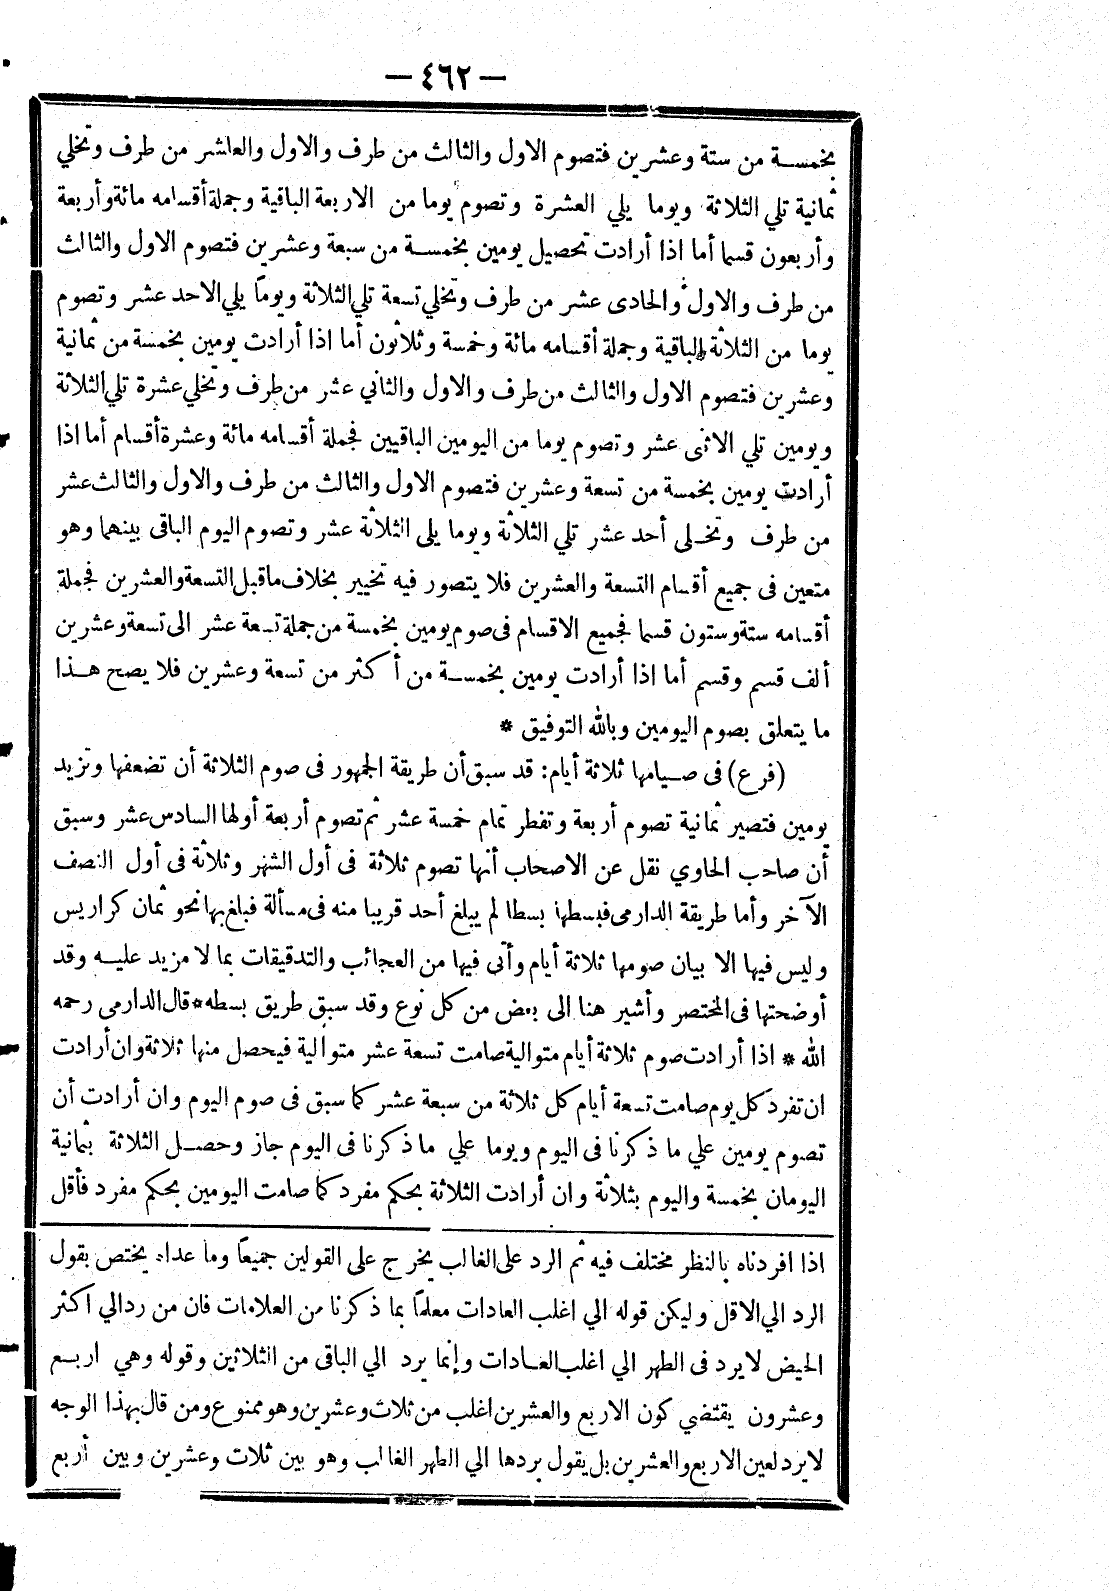 — ٤٦٢ —
بخمسة من ستة وعشرين فتصوم الاول والثالث من طرف والاول والعاشر من طرف وتخلي
ثمانية تلي الثلاثة ويوما يلي العشرة وتصوم يوما من الاربعة الباقية وجملة أقسامه مائة وأربعة
وأربعون قسما أما اذا أرادت تحصيل يومين بخمسة من سبعة وعشرين فتصوم الاول والثالث
من طرف والاول والحادى عشر من طرف وتخلي تسعة تلي الثلاثة ويوماً يلي الاحد عشر وتصوم
يوما من الثلاثة الباقية وجملة أقسامه مائة وخمسة وثلاثون أما اذا أرادت يومين بخمسة من ثمانية
وعشرين فتصوم الاول والثالث من طرف والاول والثاني عشر من طرف وتخلي عشرة تلي الثلاثة
ويومين تلي الاثنى عشر وتصوم يوما من اليومين الباقيين فجملة أقسامه مائة وعشرة أقسام أما اذا
أرادت يومين بخمسة من تسعة وعشرين فتصوم الاول والثالث من طرف والاول والثالث عشر
من طرف وتخلى أحد عشر تلي الثلاثة ويوما يلى الثلاثة عشر وتصوم اليوم الباقى بينهما وهو
متعين فى جميع أقسام التسعة والعشرين فلا يتصور فيه تخيير بخلاف ما قبل التسعة والعشرين فجملة
أقسامه ستة وستون قسما فجميع الاقسام فى صوم يومين بخمسة من جملة تسعة عشر الى تسعة وعشرين
ألف قسم وقسم أما اذا أرادت يومين بخمسة من أكثر من تسعة وعشرين فلا يصح هذا
ما يتعلق بصوم اليومين وبالله التوفيق *
(فرع) فى صيامها ثلاثة أيام: قد سبق أن طريقة الجمهور فى صوم الثلاثة أن تضعفها وتزيد
يومين فتصير ثمانية تصوم أربعة وتفطر تمام خمسة عشر ثم تصوم أربعة أولها السادس عشر وسبق
أن صاحب الحاوي نقل عن الاصحاب أنها تصوم ثلاثة فى أول الشهر وثلاثة فى أول النصف
الآخر وأما طريقة الدارمى فبسطها بسطا لم يبلغ أحد قريبا منه فى مسألة فبلغ بها نحو ثمان كراريس
وليس فيها الا بيان صومها ثلاثة أيام وأتى فيها من العجائب والتدقيقات بما لا مزيد عليه وقد
أوضحتها فى المختصر وأشير هنا الى بعض من كل نوع وقد سبق طريق بسطه * قال الدارمى رحمه
الله * اذا أرادت صوم ثلاثة أيام متوالية صامت تسعة عشر متوالية فيحصل منها ثلاثة وان أرادت
ان تفرد كل يوم صامت تسعة أيام كل ثلاثة من سبعة عشر كما سبق فى صوم اليوم وان أرادت أن
تصوم يومين علي ما ذكرنا فى اليوم ويوما علي ما ذكرنا فى اليوم جاز وحصل الثلاثة بثمانية
اليومان بخمسة واليوم بثلاثة وان أرادت الثلاثة بحكم مفرد كما صامت اليومين بحكم مفرد فأقل
اذا افردناه بالنظر مختلف فيه ثم الرد على الغالب يخرج على القولين جميعاً وما عداه يختص بقول
الرد الي الاقل وليكن قوله الي اغلب العادات معلماً بما ذكرنا من العلامات فان من رد الي اكثر
الحيض لا يرد فى الطهر الي اغلب العادات وإنما يرد الي الباقى من الثلاثين وقوله وهي اربع
وعشرون يقتضي كون الاربع والعشرين اغلب من ثلاث وعشرين وهو ممنوع ومن قال بهذا الوجه
لا يرد لعين الاربع والعشرين بل يقول بردها الي الطهر الغالب وهو بين ثلاث وعشرين وبين أربع